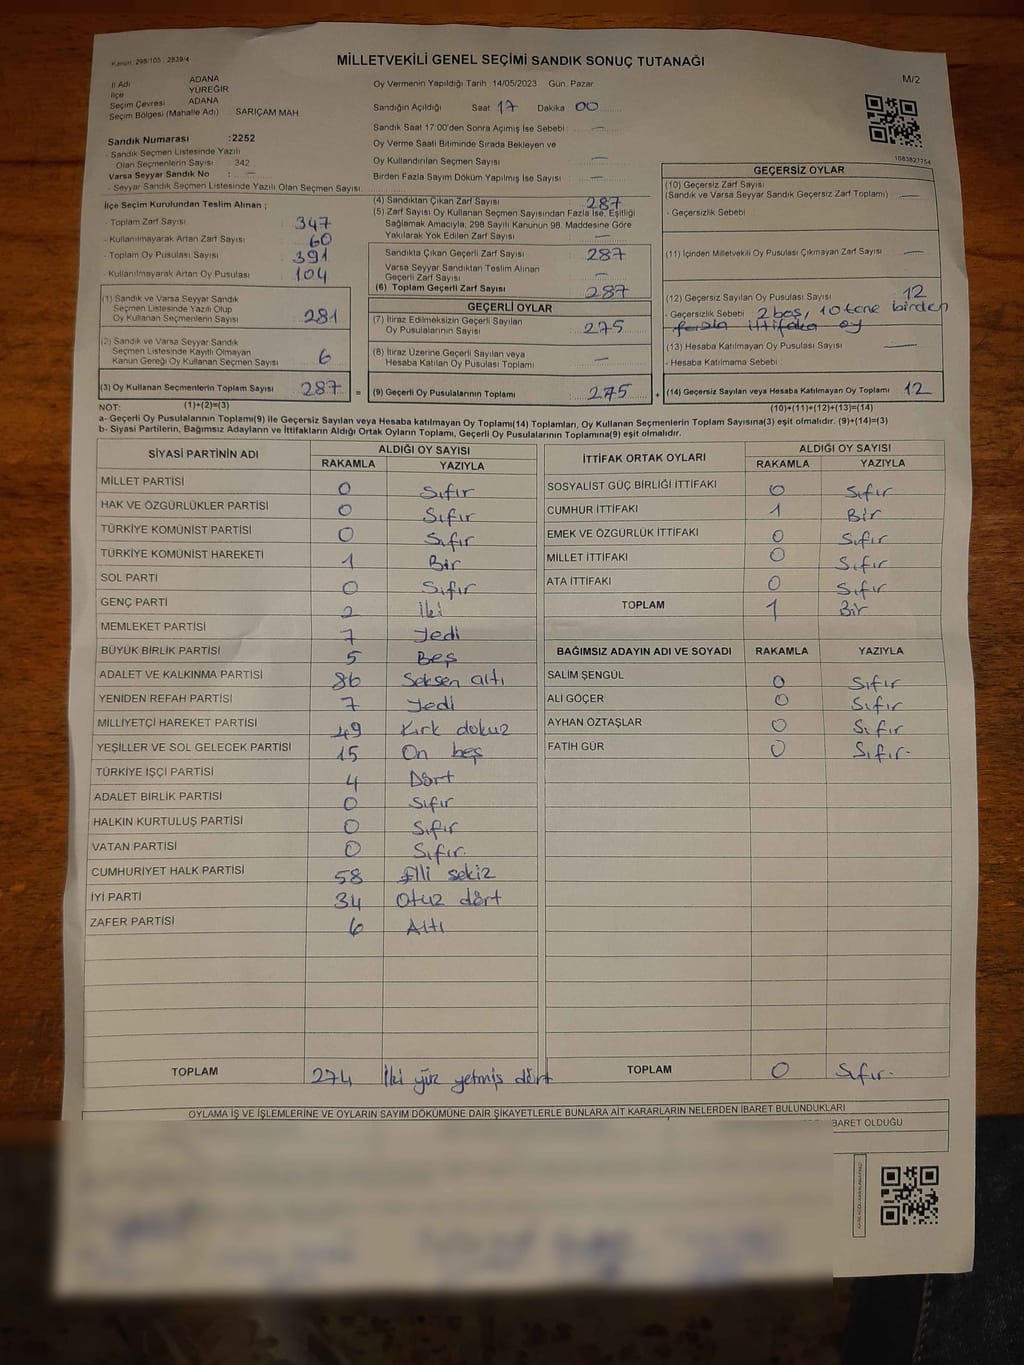 Kanun: 298/105 ; 2839/4
MİLLETVEKİLİ GENEL SEÇİMİ SANDIK SONUÇ TUTANAĞI
M/2
İl Adı ADANA
İlçe YÜREĞİR
Seçim Çevresi ADANA
Seçim Bölgesi (Mahalle Adı) SARIÇAM MAH
Oy Vermenin Yapıldığı Tarih :14/05/2023 Gün: Pazar
Sandığın Açıldığı Saat 17 Dakika 00
Sandık Saat 17:00'den Sonra Açımış İse Sebebi : —
Oy Verme Saati Bitiminde Sırada Bekleyen ve
Oy Kullandırılan Seçmen Sayısı —
Birden Fazla Sayım Döküm Yapılmış İse Sayısı —
Sandık Numarası :2252
- Sandık Seçmen Listesinde Yazılı
Olan Seçmenlerin Sayısı : 342
Varsa Seyyar Sandık No : —
- Seyyar Sandık Listesinde Yazılı Olan Seçmen Sayısı:
1083827754
İlçe Seçim Kurulundan Teslim Alınan ;
- Toplam Zarf Sayısı 347
- Kullanılmayarak Artan Zarf Sayısı 60
- Toplam Oy Pusulası Sayısı 391
- Kullanılmayarak Artan Oy Pusulası 104
(1) Sandık ve Varsa Seyyar Sandık
Seçmen Listesinde Yazılı Olup
Oy Kullanan Seçmenlerin Sayısı 281
(2) Sandık ve Varsa Seyyar Sandık
Seçmen Listesinde Kayıtlı Olmayan
Kanun Gereği Oy Kullanan Seçmen Sayısı 6
(3) Oy Kullanan Seçmenlerin Toplam Sayısı 287 =
(4) Sandıktan Çıkan Zarf Sayısı 287
(5) Zarf Sayısı Oy Kullanan Seçmen Sayısından Fazla İse, Eşitliği
Sağlamak Amacıyla; 298 Sayılı Kanunun 98. Maddesine Göre
Yakılarak Yok Edilen Zarf Sayısı —
Sandıkta Çıkan Geçerli Zarf Sayısı 287
Varsa Seyyar Sandıktan Teslim Alınan
Geçerli Zarf Sayısı —
(6) Toplam Geçerli Zarf Sayısı 287
GEÇERLİ OYLAR
(7) İtiraz Edilmeksizin Geçerli Sayılan
Oy Pusulalarının Sayısı : 275
(8) İtiraz Üzerine Geçerli Sayılan veya
Hesaba Katılan Oy Pusulası Toplamı —
(9) Geçerli Oy Pusulalarının Toplamı 275 +
GEÇERSİZ OYLAR
(10) Geçersiz Zarf Sayısı
(Sandık ve Varsa Seyyar Sandık Geçersiz Zarf Toplamı) —
- Geçersizlik Sebebi
(11) İçinden Milletvekili Oy Pusulası Çıkmayan Zarf Sayısı —
(12) Geçersiz Sayılan Oy Pusulası Sayısı 12
- Geçersizlik Sebebi 2 boş, 10 tane birden
fazla ittifaka oy
(13) Hesaba Katılmayan Oy Pusulası Sayısı —
- Hesaba Katılmama Sebebi :
(14) Geçersiz Sayılan veya Hesaba Katılmayan Oy Toplamı 12
NOT: (1)+(2)=(3)
(10)+(11)+(12)+(13)=(14)
a- Geçerli Oy Pusulalarının Toplamı(9) ile Geçersiz Sayılan veya Hesaba katılmayan Oy Toplamı(14) Toplamları, Oy Kullanan Seçmenlerin Toplam Sayısına(3) eşit olmalıdır. (9)+(14)=(3)
b- Siyasi Partilerin, Bağımsız Adayların ve İttifakların Aldığı Ortak Oyların Toplamı, Geçerli Oy Pusulalarının Toplamına(9) eşit olmalıdır.
SİYASİ PARTİNİN ADI ALDIĞI OY SAYISI
RAKAMLA YAZIYLA
MİLLET PARTİSİ 0 Sıfır
HAK VE ÖZGÜRLÜKLER PARTİSİ 0 Sıfır
TÜRKİYE KOMÜNİST PARTİSİ 0 Sıfır
TÜRKİYE KOMÜNİST HAREKETİ 1 Bir
SOL PARTİ 0 Sıfır
GENÇ PARTİ 2 İki
MEMLEKET PARTİSİ 7 Yedi
BÜYÜK BİRLİK PARTİSİ 5 Beş
ADALET VE KALKINMA PARTİSİ 86 Seksen altı
YENİDEN REFAH PARTİSİ 7 Yedi
MİLLİYETÇİ HAREKET PARTİSİ 49 Kırk dokuz
YEŞİLLER VE SOL GELECEK PARTİSİ 15 On beş
TÜRKİYE İŞÇİ PARTİSİ 4 Dört
ADALET BİRLİK PARTİSİ 0 Sıfır
HALKIN KURTULUŞ PARTİSİ 0 Sıfır
VATAN PARTİSİ 0 Sıfır.
CUMHURİYET HALK PARTİSİ 58 Elli sekiz
İYİ PARTİ 34 Otuz dört
ZAFER PARTİSİ 6 Altı
TOPLAM 274 İki yüz yetmiş dört
İTTİFAK ORTAK OYLARI ALDIĞI OY SAYISI
RAKAMLA YAZIYLA
SOSYALİST GÜÇ BİRLİĞİ İTTİFAKI 0 Sıfır
CUMHUR İTTİFAKI 1 Bir
EMEK VE ÖZGÜRLÜK İTTİFAKI 0 Sıfır
MİLLET İTTİFAKI 0 Sıfır
ATA İTTİFAKI 0 Sıfır
TOPLAM 1 Bir
BAĞIMSIZ ADAYIN ADI VE SOYADI RAKAMLA YAZIYLA
SALİM ŞENGÜL 0 Sıfır
ALİ GÖÇER 0 Sıfır
AYHAN ÖZTAŞLAR 0 Sıfır
FATİH GÜR 0 Sıfır.
TOPLAM 0 Sıfır.
OYLAMA İŞ VE İŞLEMLERİNE VE OYLARIN SAYIM DÖKÜMÜNE DAİR ŞİKAYETLERLE BUNLARA AİT KARARLARIN NELERDEN İBARET BULUNDUKLARI
BARET OLDUĞU